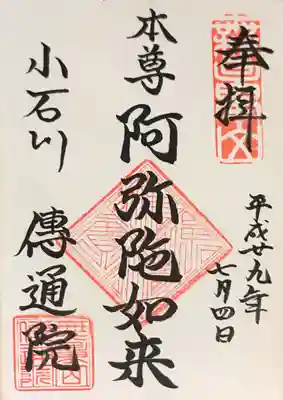 奉拝
平成廿九年
七月四日
本尊
阿弥陀如来
小石川
傳通院